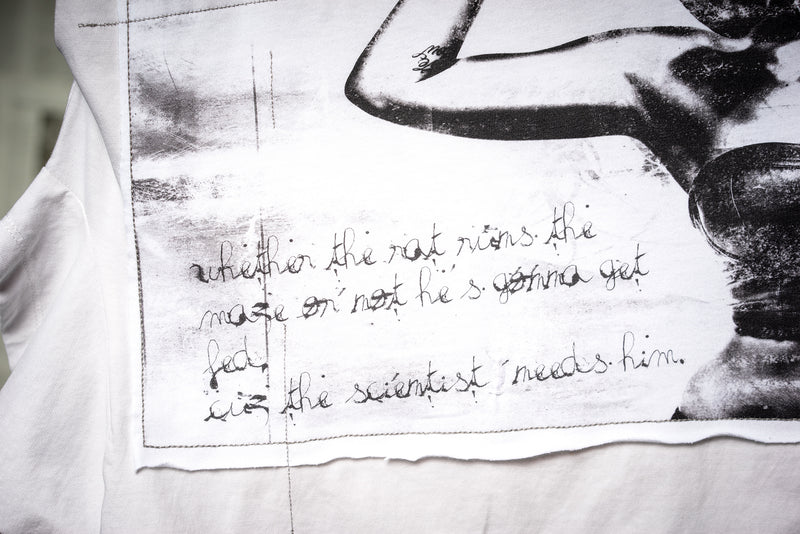 whether the rat runs the
maze or not he's gonna get
fed.
cuz the scientist needs him.